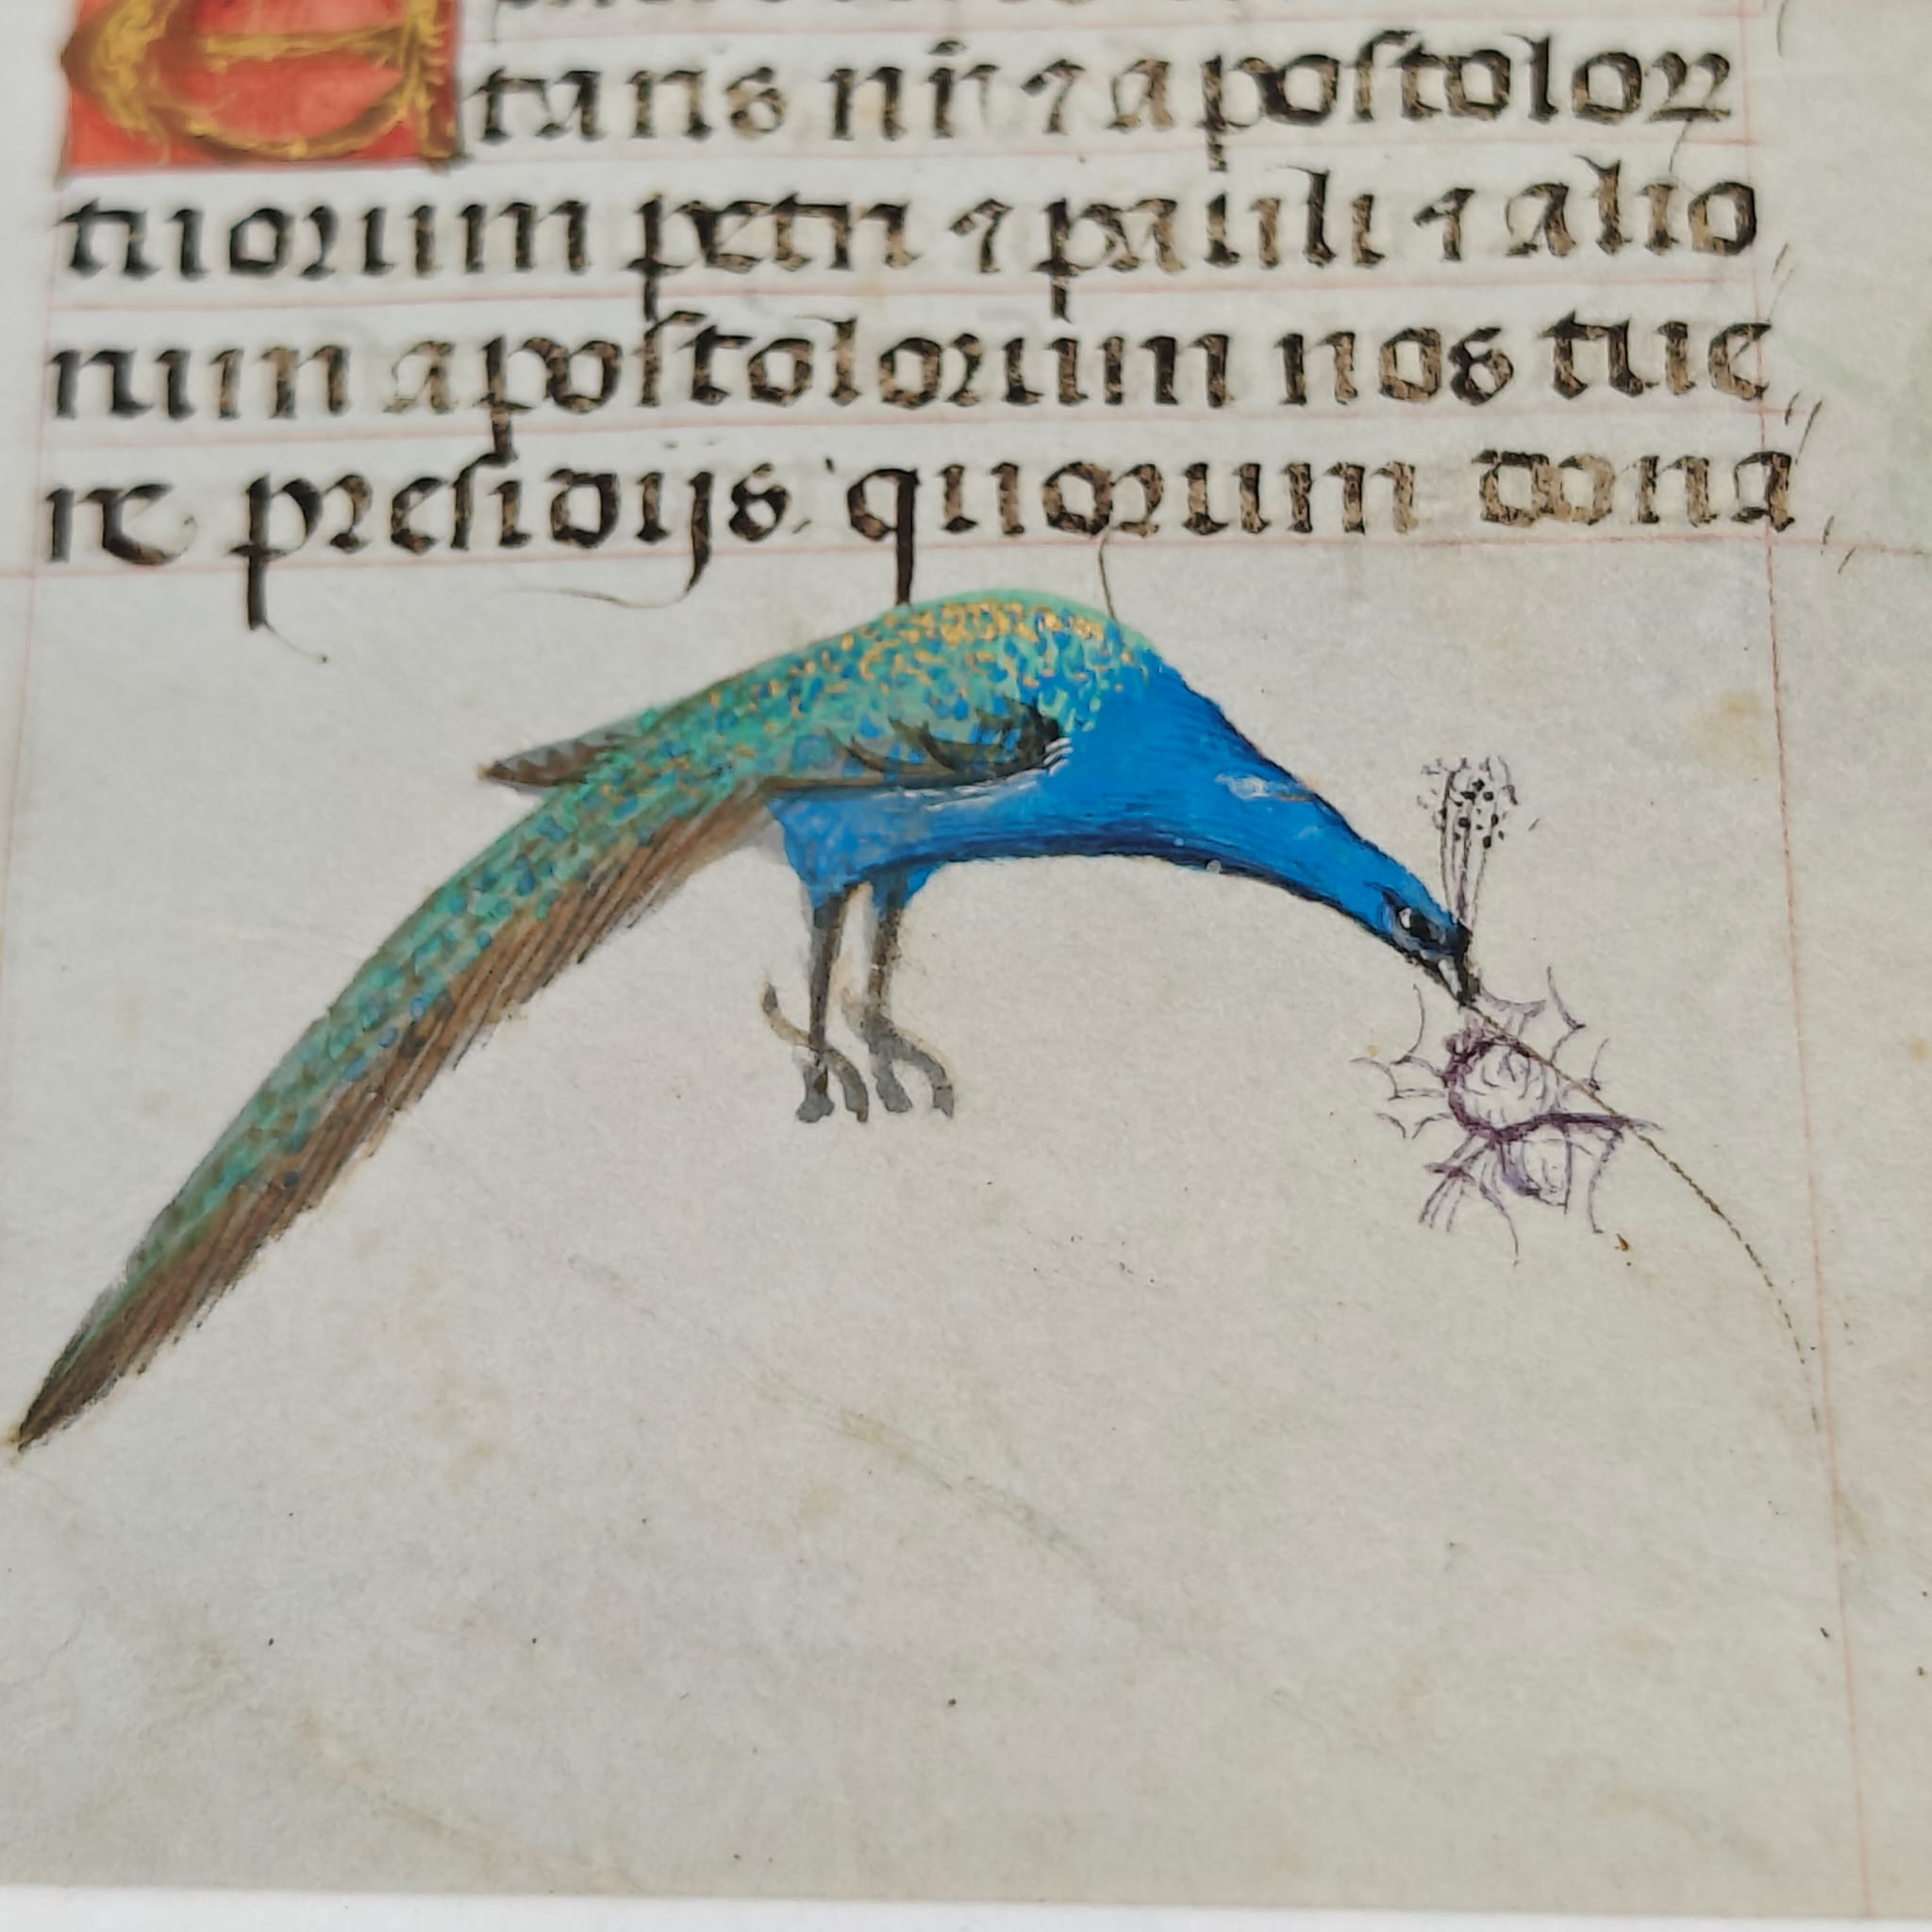 E
tans nr̄ ⁊ apostoloꝝ
tuorum petri ⁊ pauli ⁊ alio
rum apostolorum nos tue
re presidijs. quorum dona